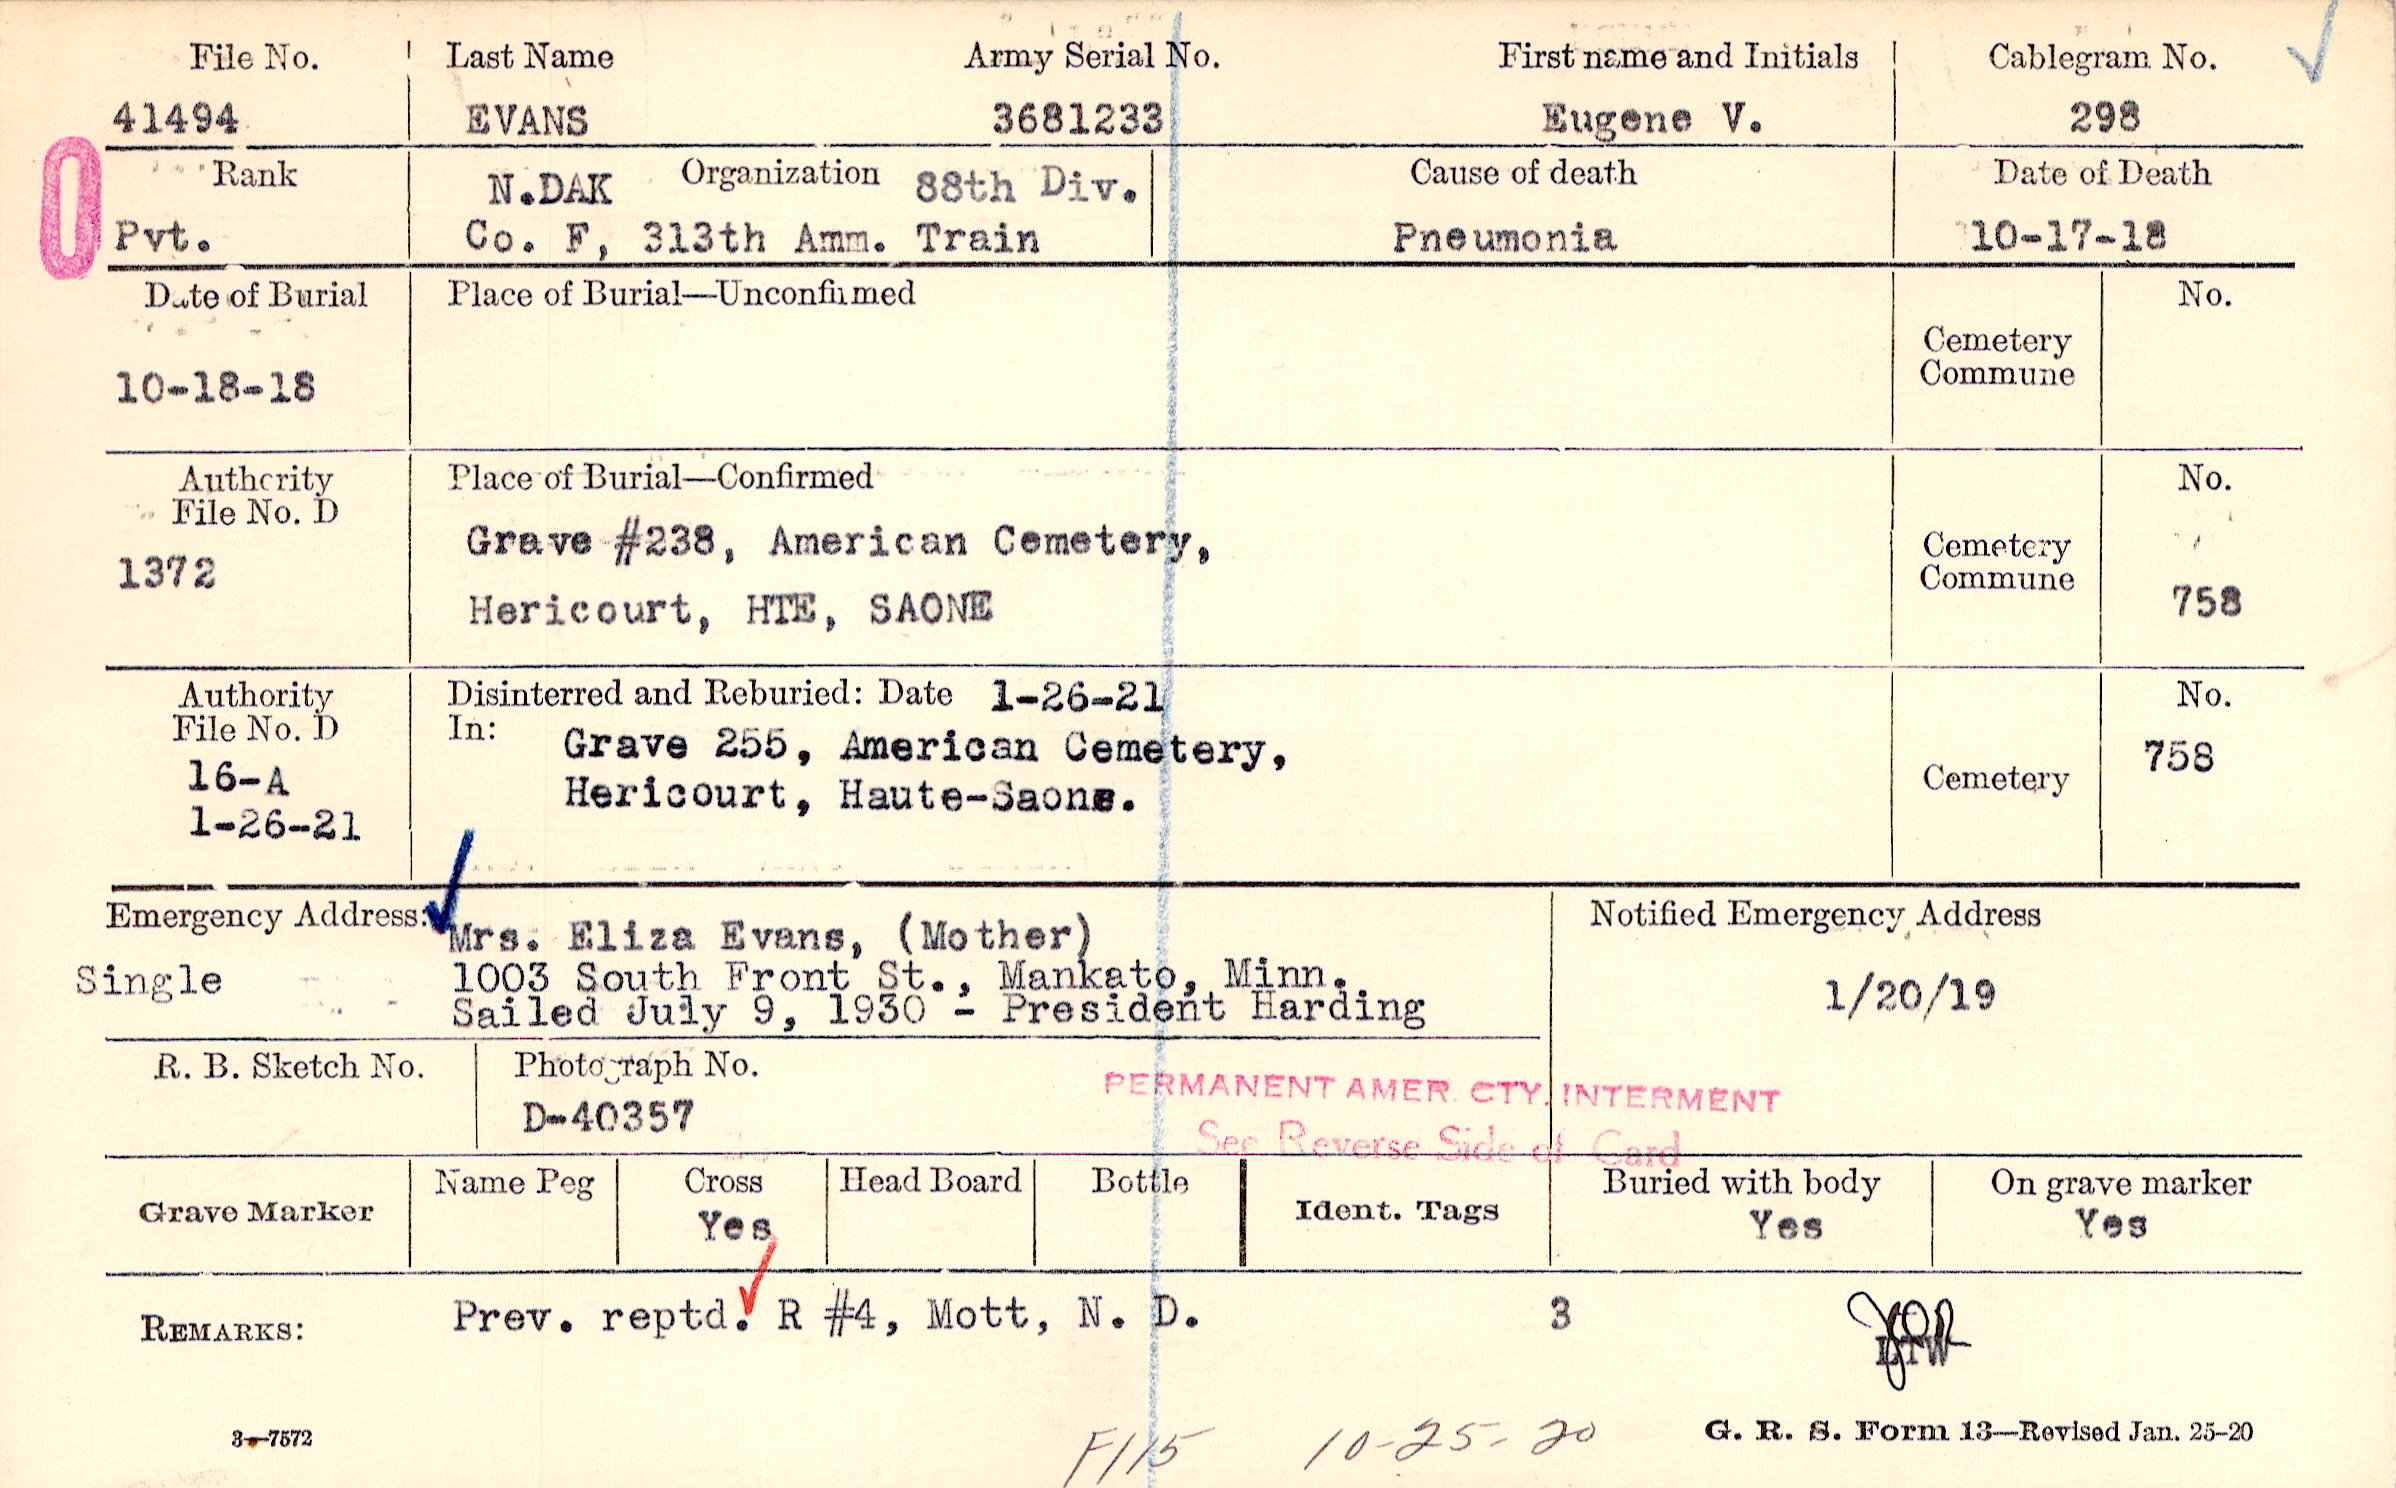 File No. Last Name Army Serial No. First name and Initials Cablegram No.
41494 EVANS 3681233 Eugene V. 298
Rank N.DAK Organization 88th Div. Cause of death Date of Death
Pvt. Co. F, 313th Amm. Train Pneumonia 10-17-18
Date of Burial Place of Burial—Unconfirmed No.
Cemetery
Commune
10-18-18
Authority Place of Burial—Confirmed No.
File No. D
Grave #238, American Cemetery, Cemetery
1372 Commune
Hericourt, HTE, SAONE 758
Authority Disinterred and Reburied: Date 1-26-21 No.
File No. D In: Grave 255, American Cemetery, 758
16-A Hericourt, Haute-Saone. Cemetery
1-26-21
Emergency Address: Mrs. Eliza Evans, (Mother) Notified Emergency Address
Single 1003 South Front St., Mankato, Minn. 1/20/19
Sailed July 9, 1930 - President Harding
R. B. Sketch No. Photograph No.
D-40357
PERMANENT AMER. CTY. INTERMENT
See Reverse Side of Card
Grave Marker Name Peg Cross Head Board Bottle Ident. Tags Buried with body On grave marker
Yes Yes Yes
REMARKS: Prev. reptd. R #4, Mott, N. D. 3
LTW
3—7572 F115 10-25-20 G. R. S. Form 13—Revised Jan. 25-20